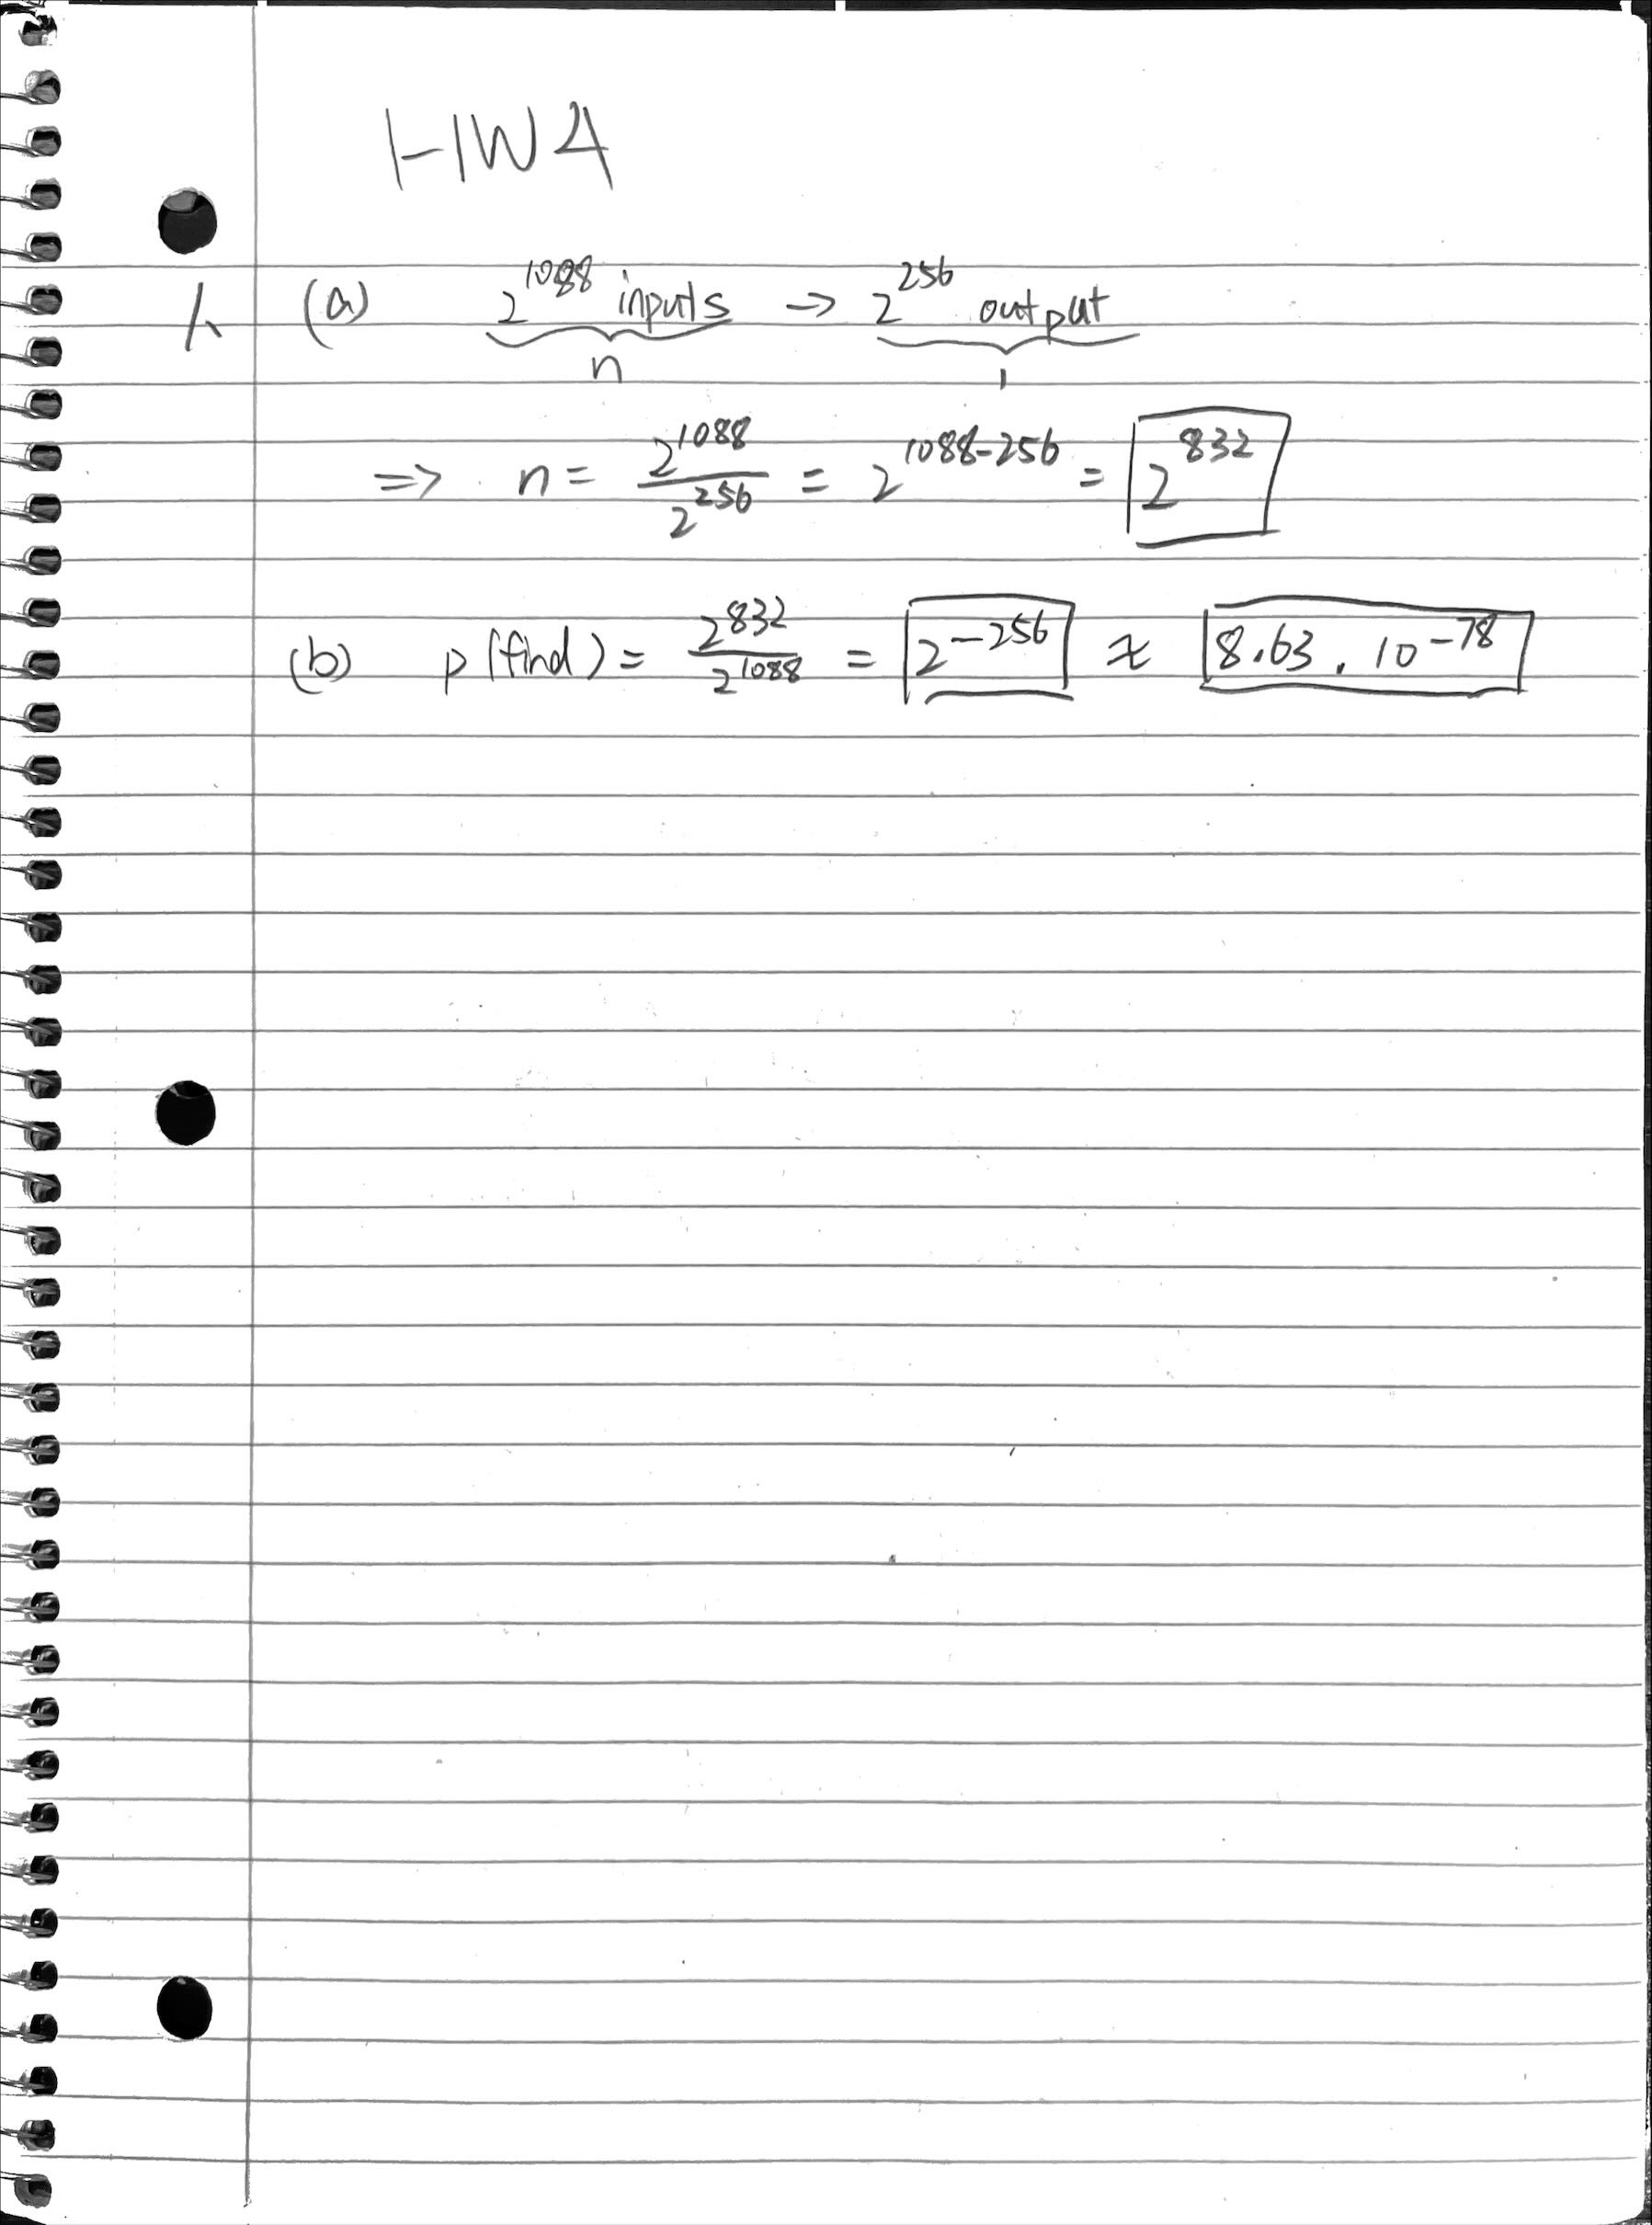 HW4
1. (a) 2^1088 inputs → 2^256 output
n 1
⇒ n = 2^1088 / 2^256 = 2^1088-256 = 2^832
(b) p(find) = 2^832 / 2^1088 = 2^-256 ≈ 8.63 · 10^-78